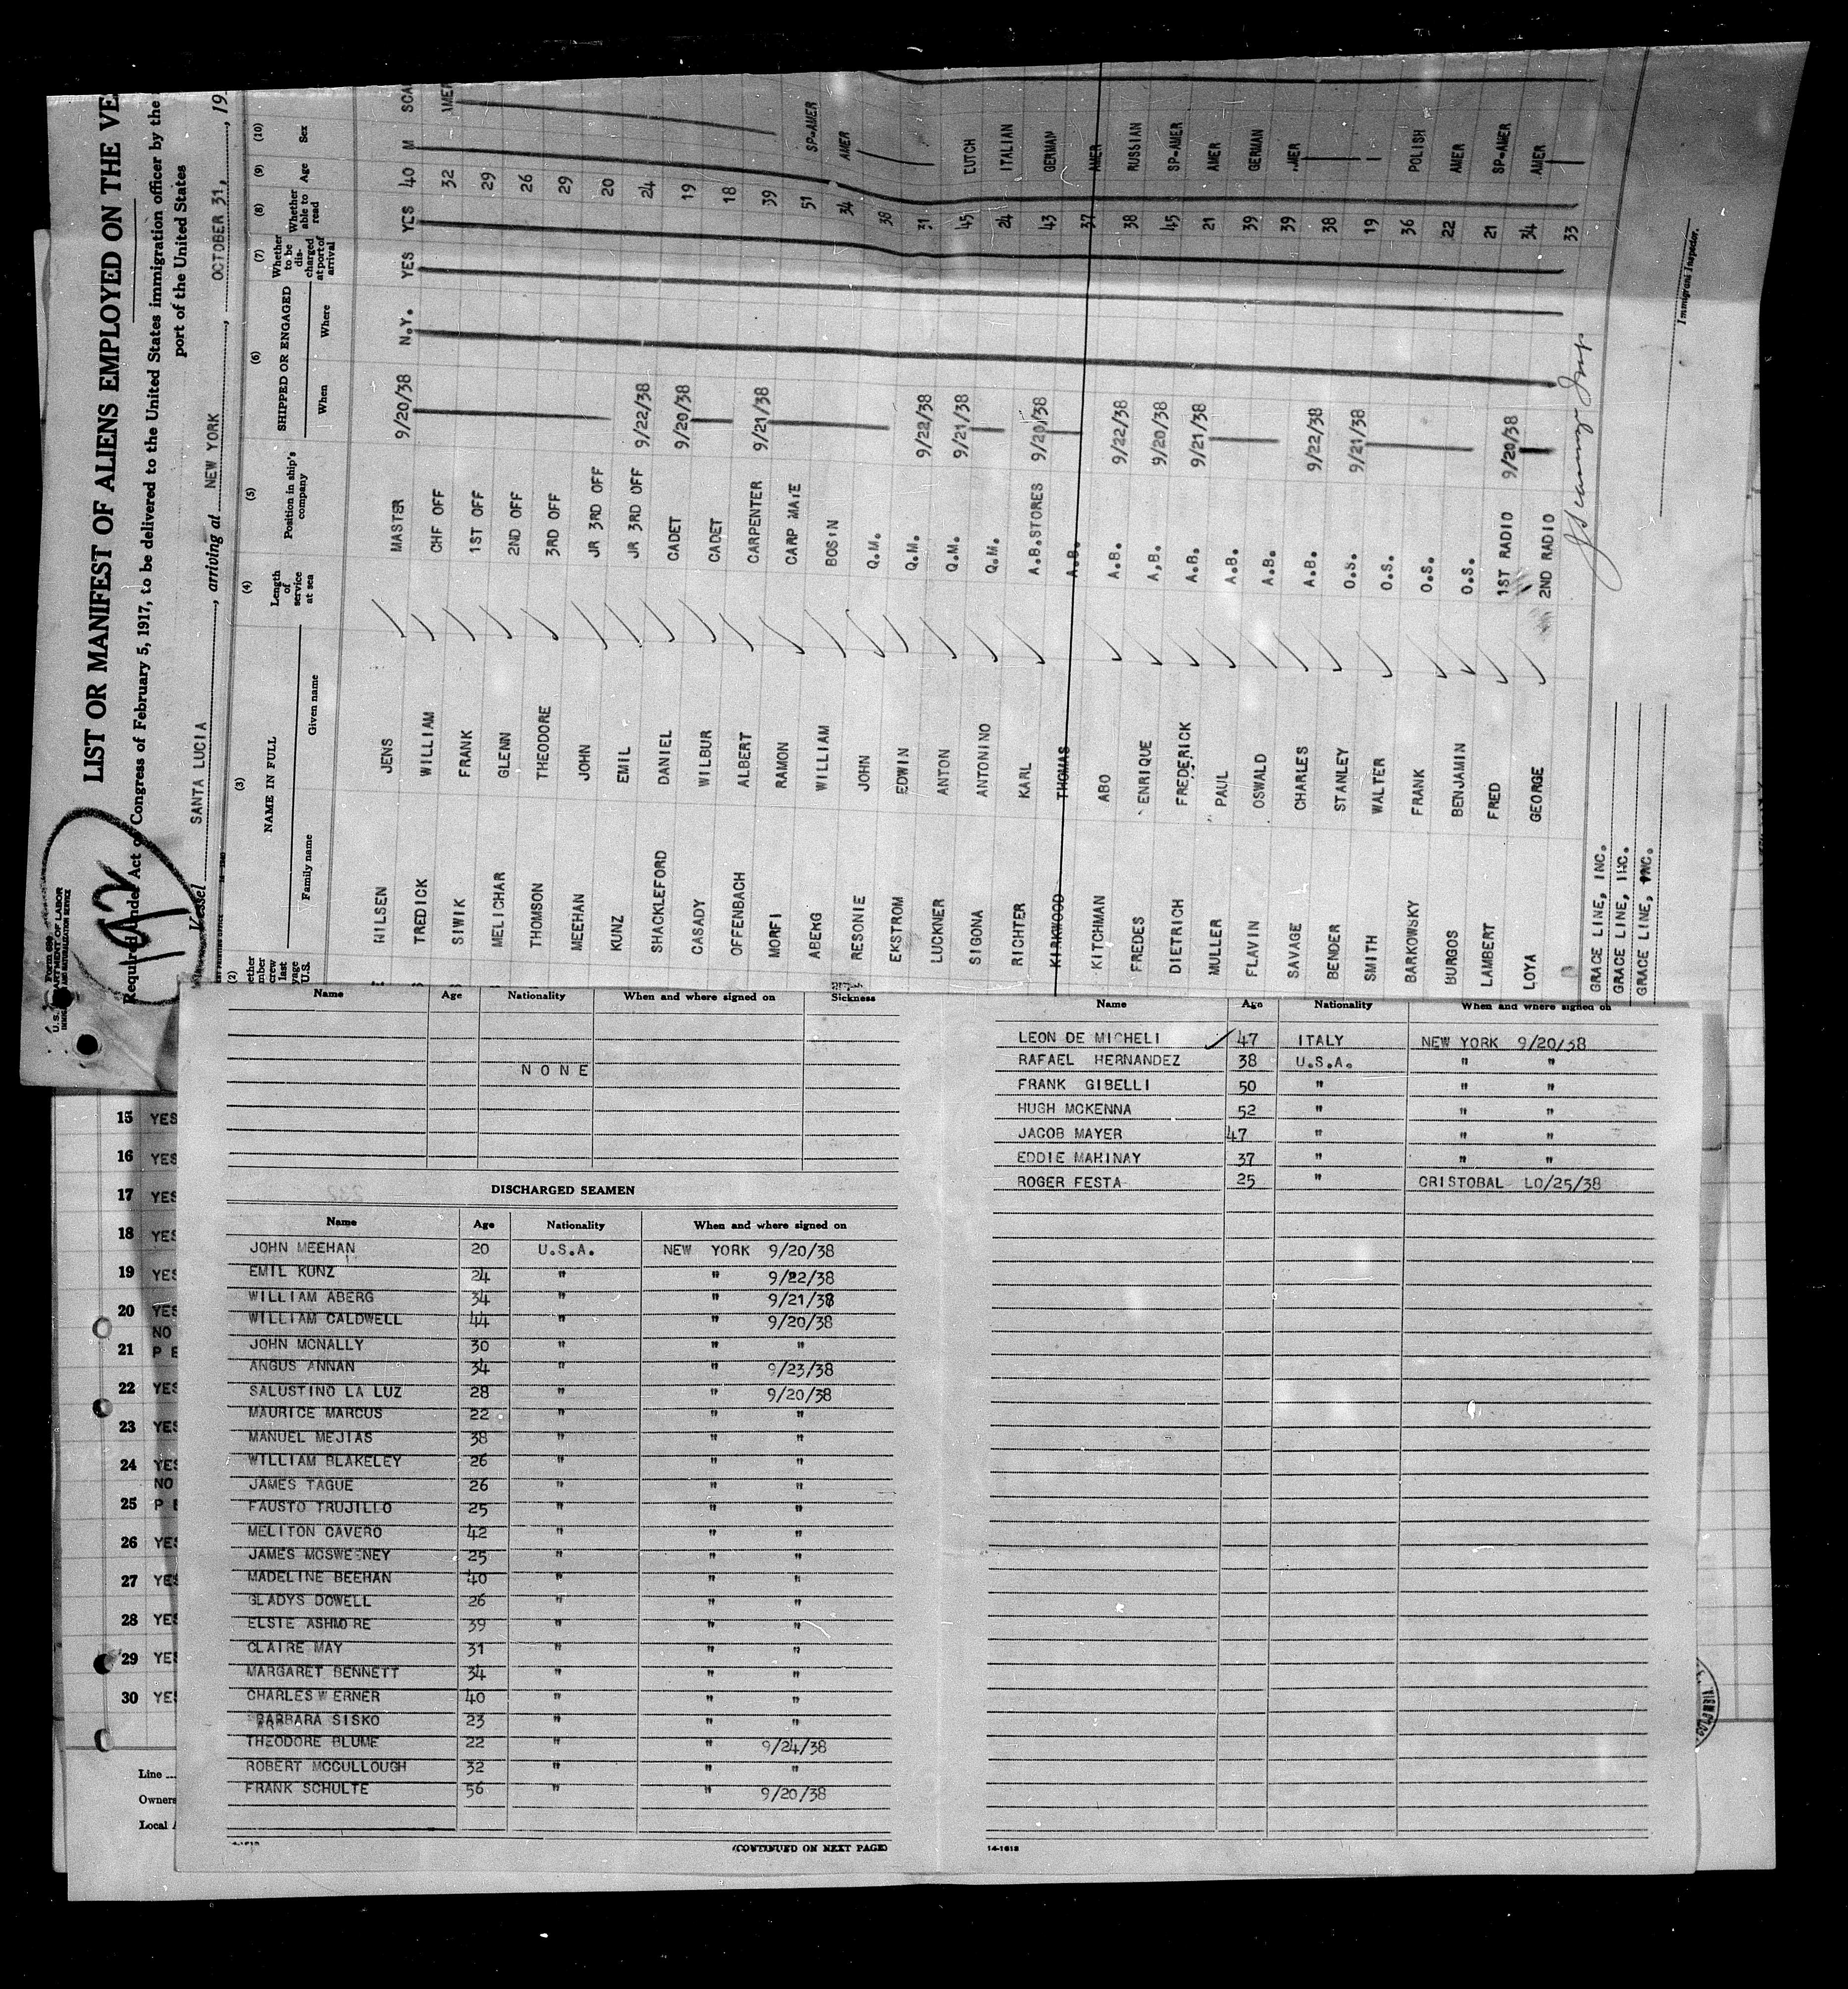 LIST OR MANIFEST OF ALIENS EMPLOYED ON THE VE
Required under Act of Congress of February 5, 1917, to be delivered to the United States immigration officer by the
port of the United States
Vessel SANTA LUCIA, arriving at NEW YORK, OCTOBER 31, 19
192
Form 680
(2) (3) (4) (5) (6) (7) (8) (9) (10)
NAME IN FULL Length of service at sea Position in ship's company SHIPPED OR ENGAGED Whether to be discharged at port of arrival Whether able to read Age Sex
Family name Given name When Where
NILSEN JENS MASTER 9/20/38 N.Y. YES YES 40 M SCA
TREDICK WILLIAM CHF OFF 32 AMER
SIWIK FRANK 1ST OFF 29
MELICHAR GLENN 2ND OFF 26
THOMSON THEODORE 3RD OFF 29
MEEHAN JOHN JR 3RD OFF 20
KUNZ EMIL JR 3RD OFF 9/22/38 24
SHACKLEFORD DANIEL CADET 9/20/38 19
CASADY WILBUR CADET 18
OFFENBACH ALBERT CARPENTER 9/21/38 39
MORFI RAMON CARP MATE 51 SP=AMER
ABERG WILLIAM BOSIN 34 AMER
RESONIE JOHN Q.M. 38
EKSTROM EDWIN Q.M. 9/22/38 31
LUCKNER ANTON Q.M. 9/21/38 45 DUTCH
SIGONA ANTONINO Q.M. 24 ITALIAN
RICHTER KARL A.B.STORES 9/20/38 43 GERMAN
KIRKWOOD THOMAS A.B. 37 AMER
KITCHMAN ABO A.B. 9/22/38 38 RUSSIAN
FREDES ENRIQUE A,B. 9/20/38 45 SP=AMER
DIETRICH FREDERICK A.B. 9/21/38 21 AMER
MULLER PAUL A.B. 39 GERMAN
FLAVIN OSWALD A.B. 39 AMER
SAVAGE CHARLES A.B. 9/22/38 38
BENDER STANLEY O.S. 9/21/38 19
SMITH WALTER O.S. 36 POLISH
BARKOWSKY FRANK O.S. 22 AMER
BURGOS BENJAMIN O.S. 21 SP=AMER
LAMBERT FRED 1ST RADIO 9/20/38 34 AMER
LOYA GEORGE 2ND RADIO 33
GRACE LINE, INC.
GRACE LINE, INC.
GRACE LINE, INC.
Immigrant Inspector.
Name Age Nationality When and where signed on Sickness
NONE
DISCHARGED SEAMEN
Name Age Nationality When and where signed on
JOHN MEEHAN 20 U.S.A. NEW YORK 9/20/38
EMIL KUNZ 24 " " 9/22/38
WILLIAM ABERG 34 " " 9/21/38
WILLIAM CALDWELL 44 " " 9/20/38
JOHN MCNALLY 30 " " "
ANGUS ANNAN 34 " " 9/23/38
SALUSTINO LA LUZ 28 " " 9/20/38
MAURICE MARCUS 22 " " "
MANUEL MEJIAS 38 " " "
WILLIAM BLAKELEY 26 " " "
JAMES TAGUE 26 " " "
FAUSTO TRUJILLO 25 " " "
MELITON CAVERO 42 " " "
JAMES MCSWEENEY 25 " " "
MADELINE BEEHAN 40 " " "
GLADYS DOWELL 26 " " "
ELSIE ASHMORE 39 " " "
CLAIRE MAY 31 " " "
MARGARET BENNETT 34 " " "
CHARLES WERNER 40 " " "
BARBARA SISKO 23 " " "
THEODORE BLUME 22 " " 9/24/38
ROBERT MCCULLOUGH 32 " " "
FRANK SCHULTE 56 " " 9/20/38
(CONTINUED ON NEXT PAGE)
Name Age Nationality When and where signed on
LEON DE MICHELI 47 ITALY NEW YORK 9/20/38
RAFAEL HERNANDEZ 38 U.S.A. " "
FRANK GIBELLI 50 " " "
HUGH MCKENNA 52 " " "
JACOB MAYER 47 " " "
EDDIE MARINAY 37 " " "
ROGER FESTA 25 " CRISTOBAL LO/25/38
14-1613
15 YES
16 YES
17 YES
18 YES
19 YES
20 YES
NO
21 P E
22 YES
23 YES
24 YES
NO
25 P E
26 YES
27 YES
28 YES
29 YES
30 YES
Line
Owners
Local